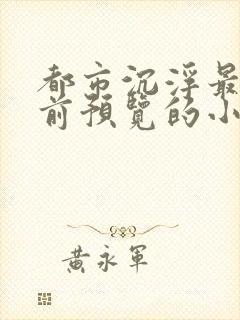 都市沉浮最
前預覽的小
黃永軍